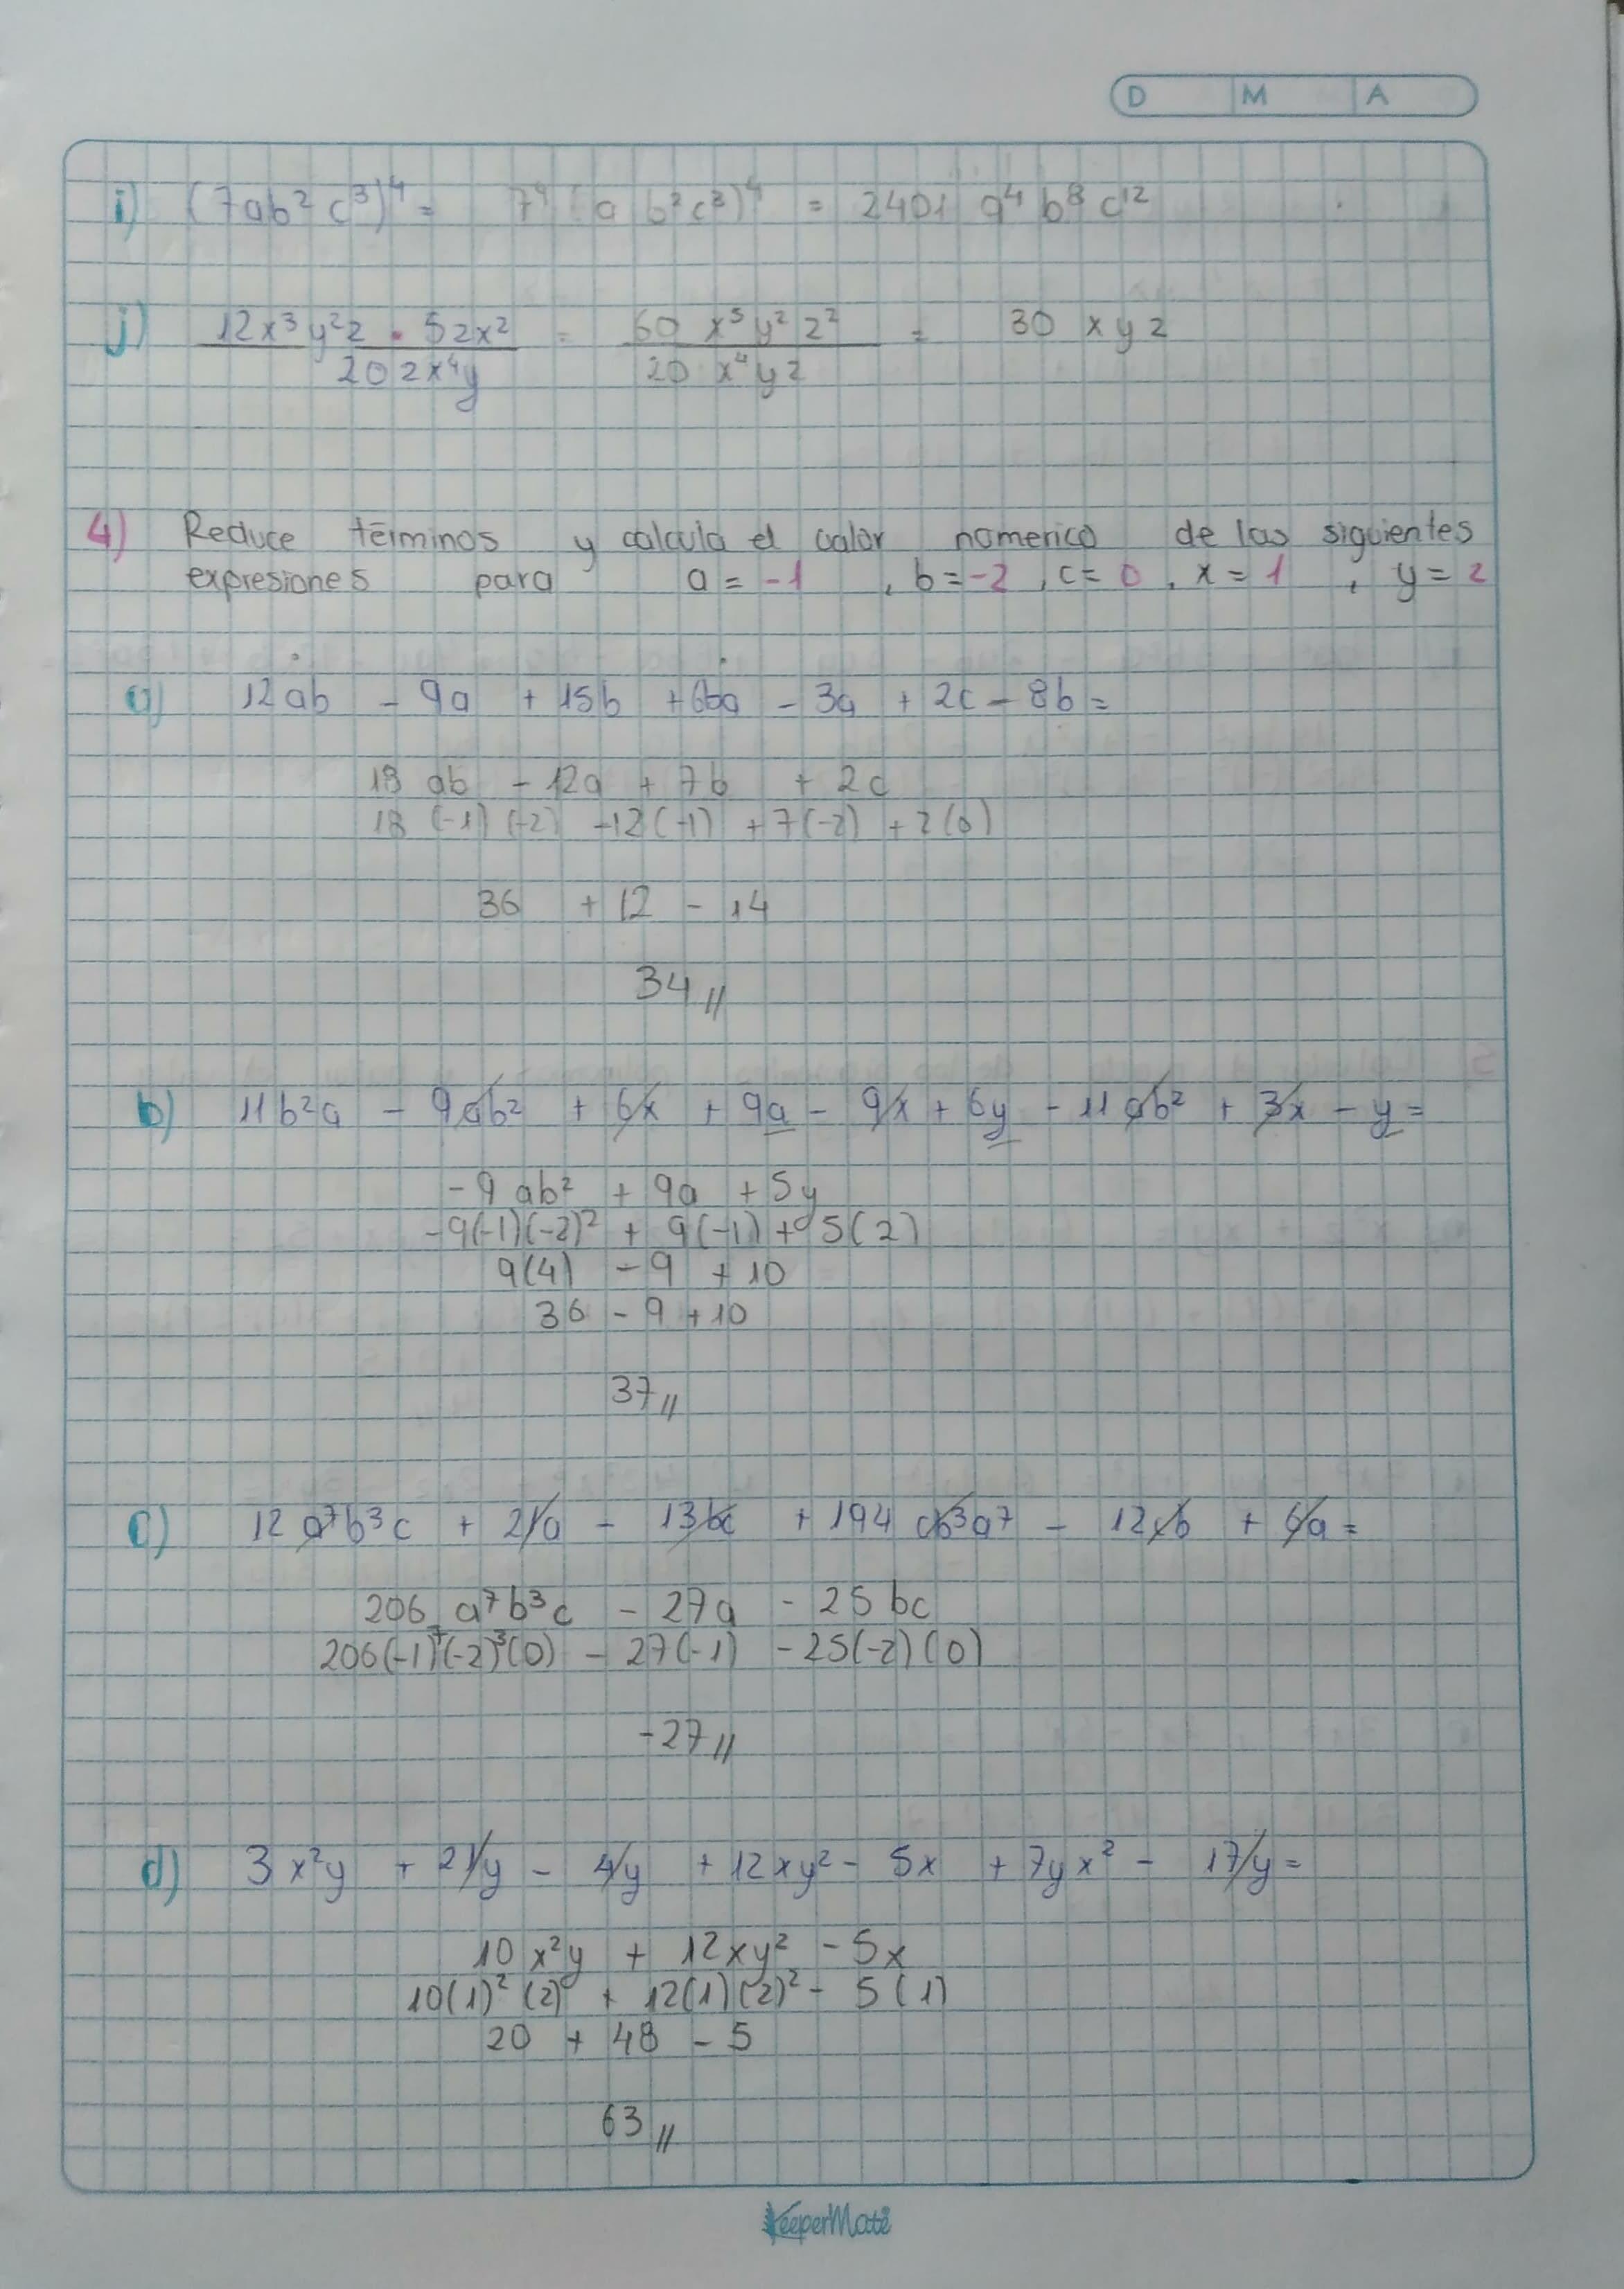 D M A
i) (7ab²c³)⁴ = 7⁴ (a b²c³)⁴ = 2401 a⁴ b⁸ c¹²
j) 12x³y²z • 5zx² / 20zx⁴y = 60 x⁵y²z² / 20 x⁴yz = 30 xyz
4) Reduce términos y calcula el valor nomerico de las siguientes
expresiones para a = -1 , b = -2 , c = 0 , x = 1 , y = 2
a) 12ab - 9a + 15b + 6ba - 3a + 2c - 8b =
18 ab - 12a + 7b + 2c
18 (-1) (-2) -12(-1) + 7(-2) + 2(0)
36 + 12 - 14
34 //
b) 11b²a - 9ab² + 6x + 9a - 9x + 6y - 11ab² + 3x - y =
-9ab² + 9a + 5y
-9(-1)(-2)² + 9(-1) + 5(2)
9(4) - 9 + 10
36 - 9 + 10
37 //
c) 12a⁷b³c + 21a - 13bc + 194 cb³a⁷ - 12cb + 6a =
206 a⁷b³c - 27a - 25bc
206(-1)⁷(-2)³(0) - 27(-1) - 25(-2)(0)
-27 //
d) 3x²y + 21y - 4y + 12xy² - 5x + 7yx² - 17y =
10x²y + 12xy² - 5x
10(1)²(2) + 12(1)(2)² - 5(1)
20 + 48 - 5
63 //
KeeperMate